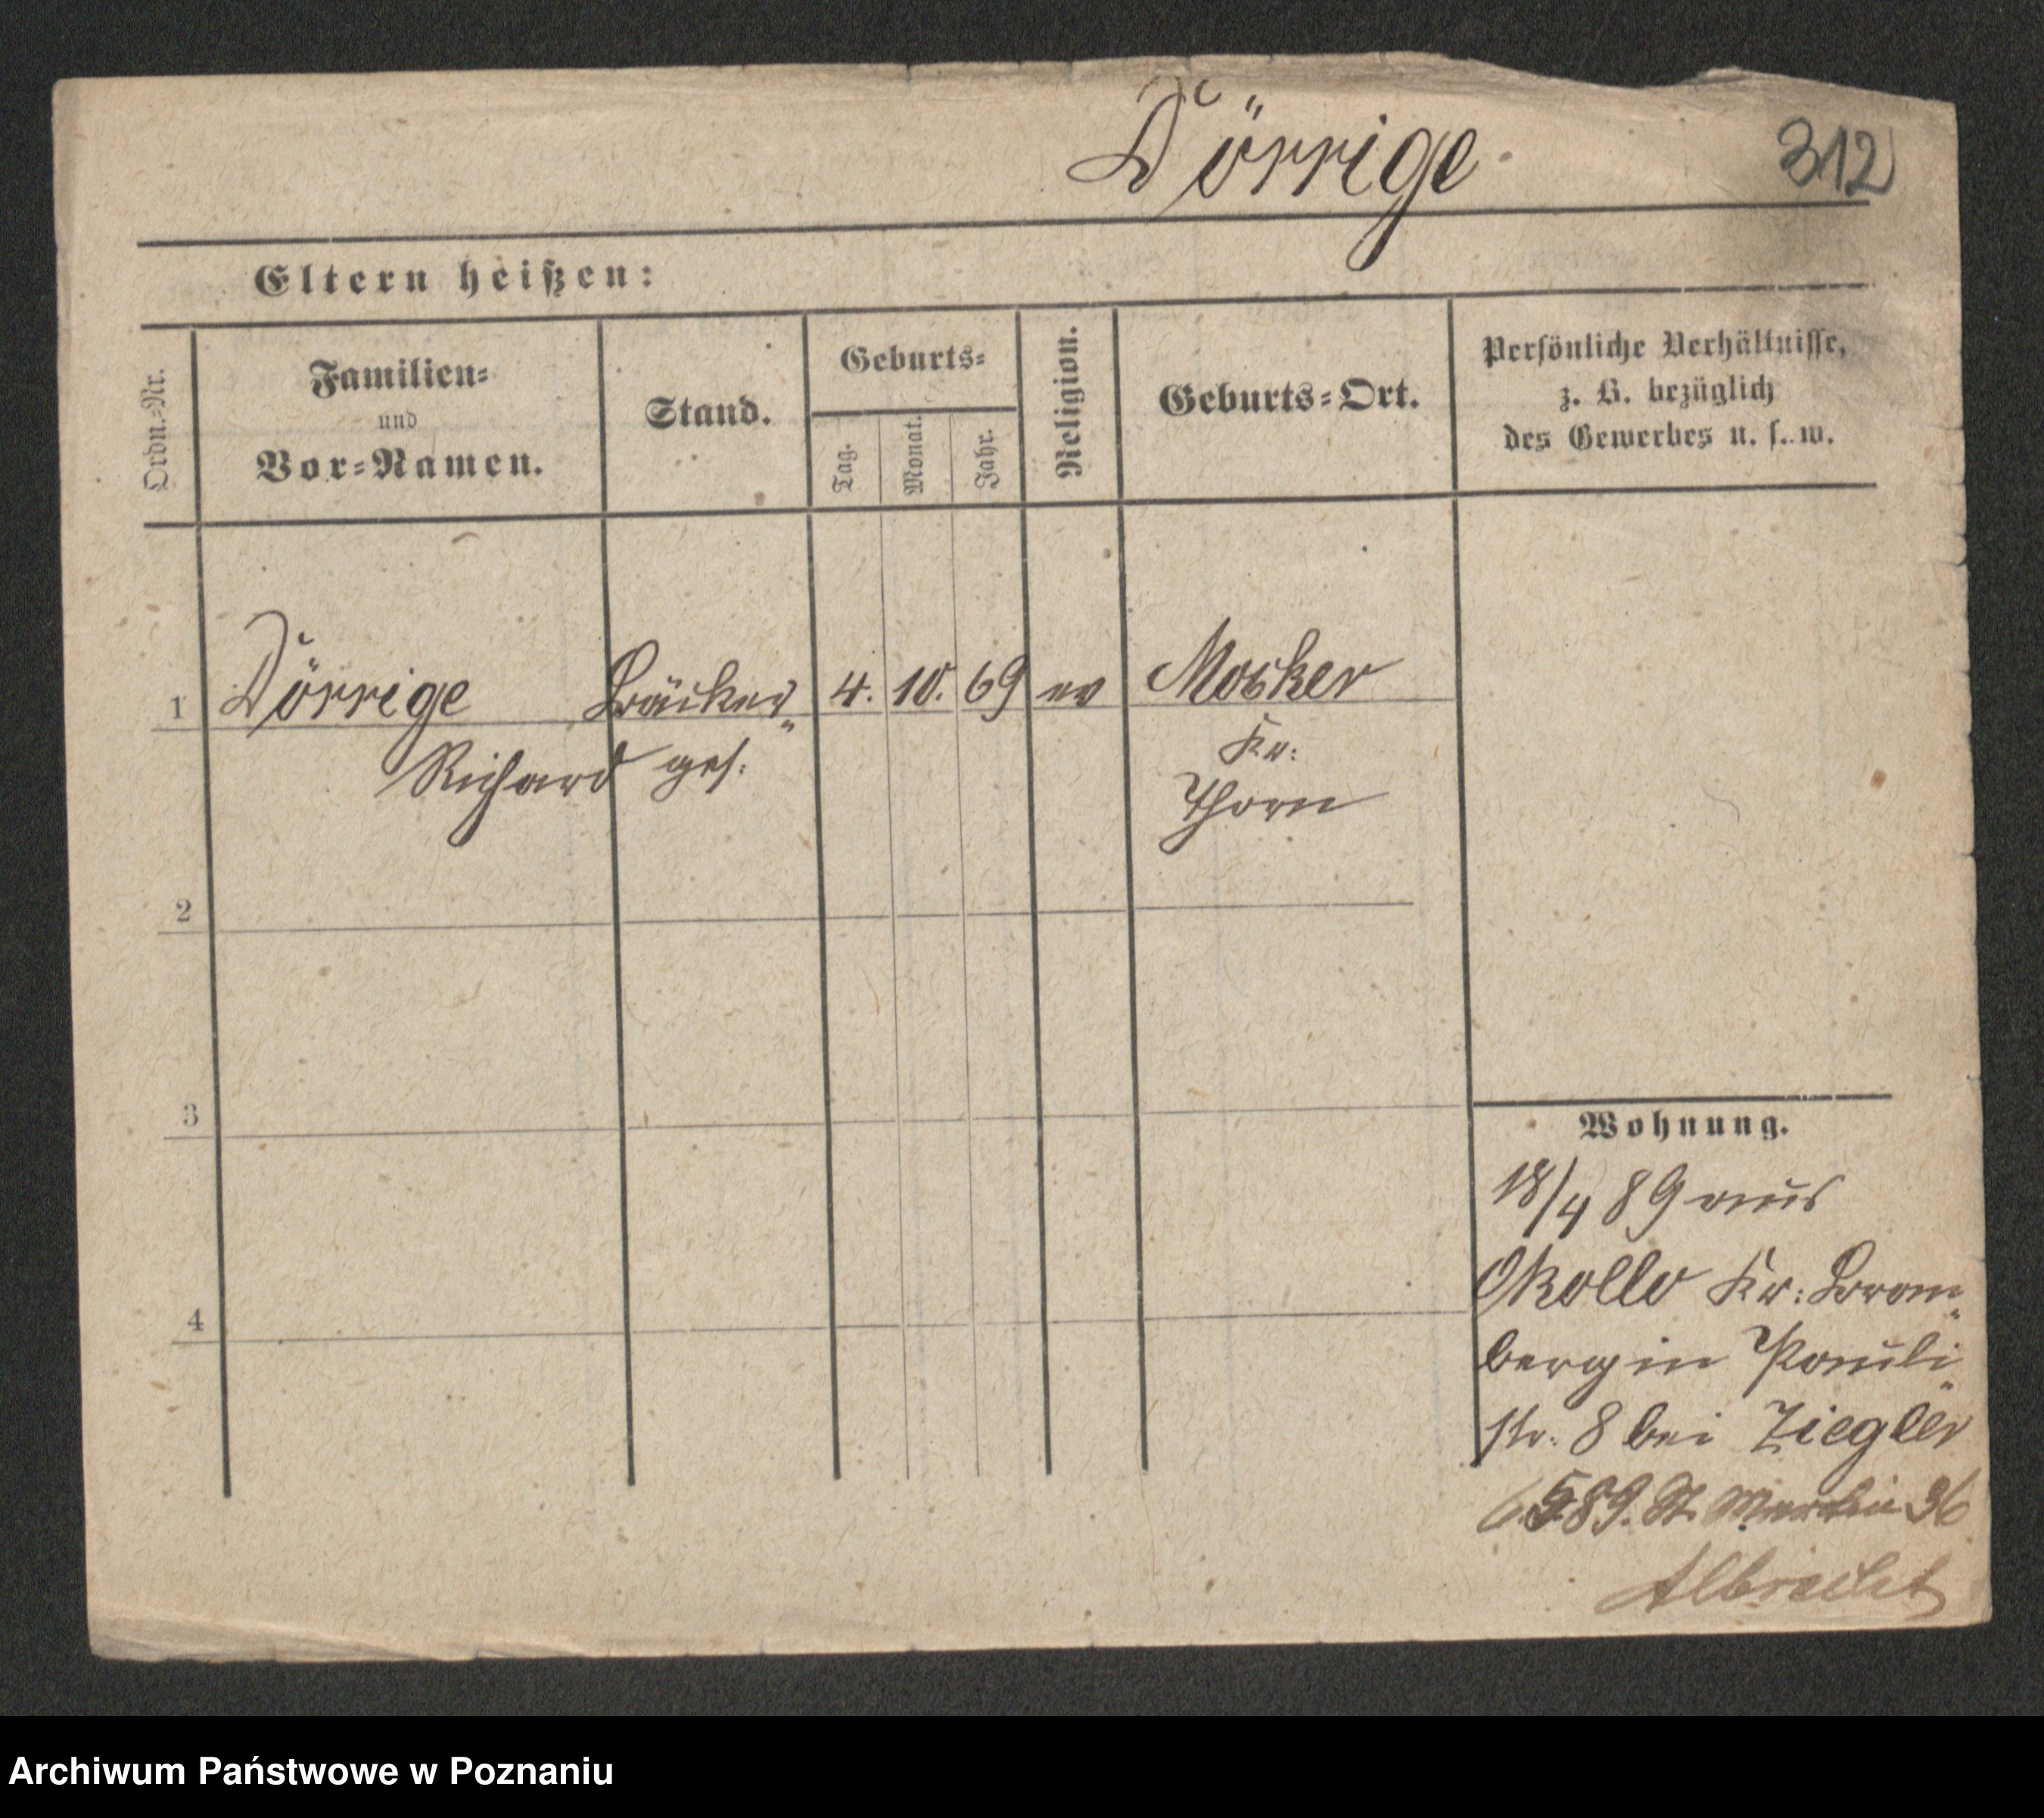 Dörrige
312
Eltern heißen:
Ordn.-Nr.
Familien-
und
Vor-Namen.
Stand.
Geburts-
Tag.
Monat.
Jahr.
Religion.
Geburts-Ort.
Persönliche Verhältnisse,
z. B. bezüglich
des Gewerbes u. s. w.
1 Dörrige Bäcker- 4. 10. 69 ev Mocker
Richard ges. Kr.
Thorn
2
3
4
Wohnung.
18/4 89 aus
Okollo Kr. Brom-
berg in Pauli-
str. 8 bei Ziegler
6.5.89. St. Martin 36
Albrecht
Archiwum Państwowe w Poznaniu